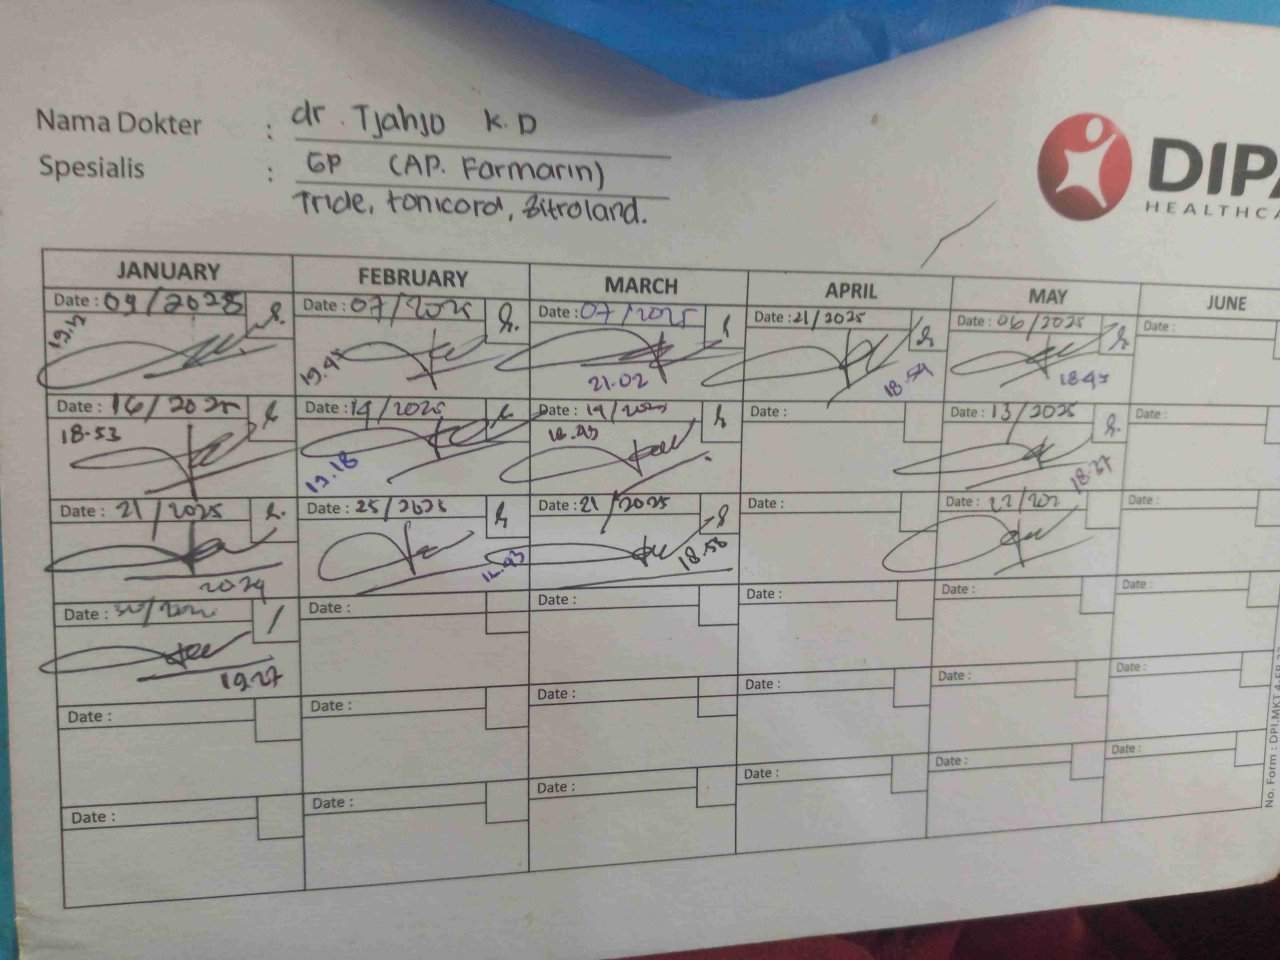 Nama Dokter : dr. Tjahjo K.D
Spesialis : GP (AP. Farmarin)
Tride, tonicord, Zitroland.
DIPA
HEALTHCA
JANUARY FEBRUARY MARCH APRIL MAY JUNE
Date : 09/2025 Date : 07/2025 Date : 07/2025 Date : 21/2025 Date : 06/2025 Date :
19.45 21.02 18.54 18.47
Date : 16/2025 Date : 14/2025 Date : 14/2025 Date : Date : 13/2025 Date :
18.53 19.18 18.43 18.27
Date : 21/2025 Date : 25/2025 Date : 21/2025 Date : Date : 22/202 Date :
2024 18.43 18.58
Date : 30/ Date : Date : Date : Date : Date :
19.27
Date : Date : Date : Date : Date : Date :
Date : Date : Date : Date : Date : Date :
No. Form : DPI.MKT.4-FR